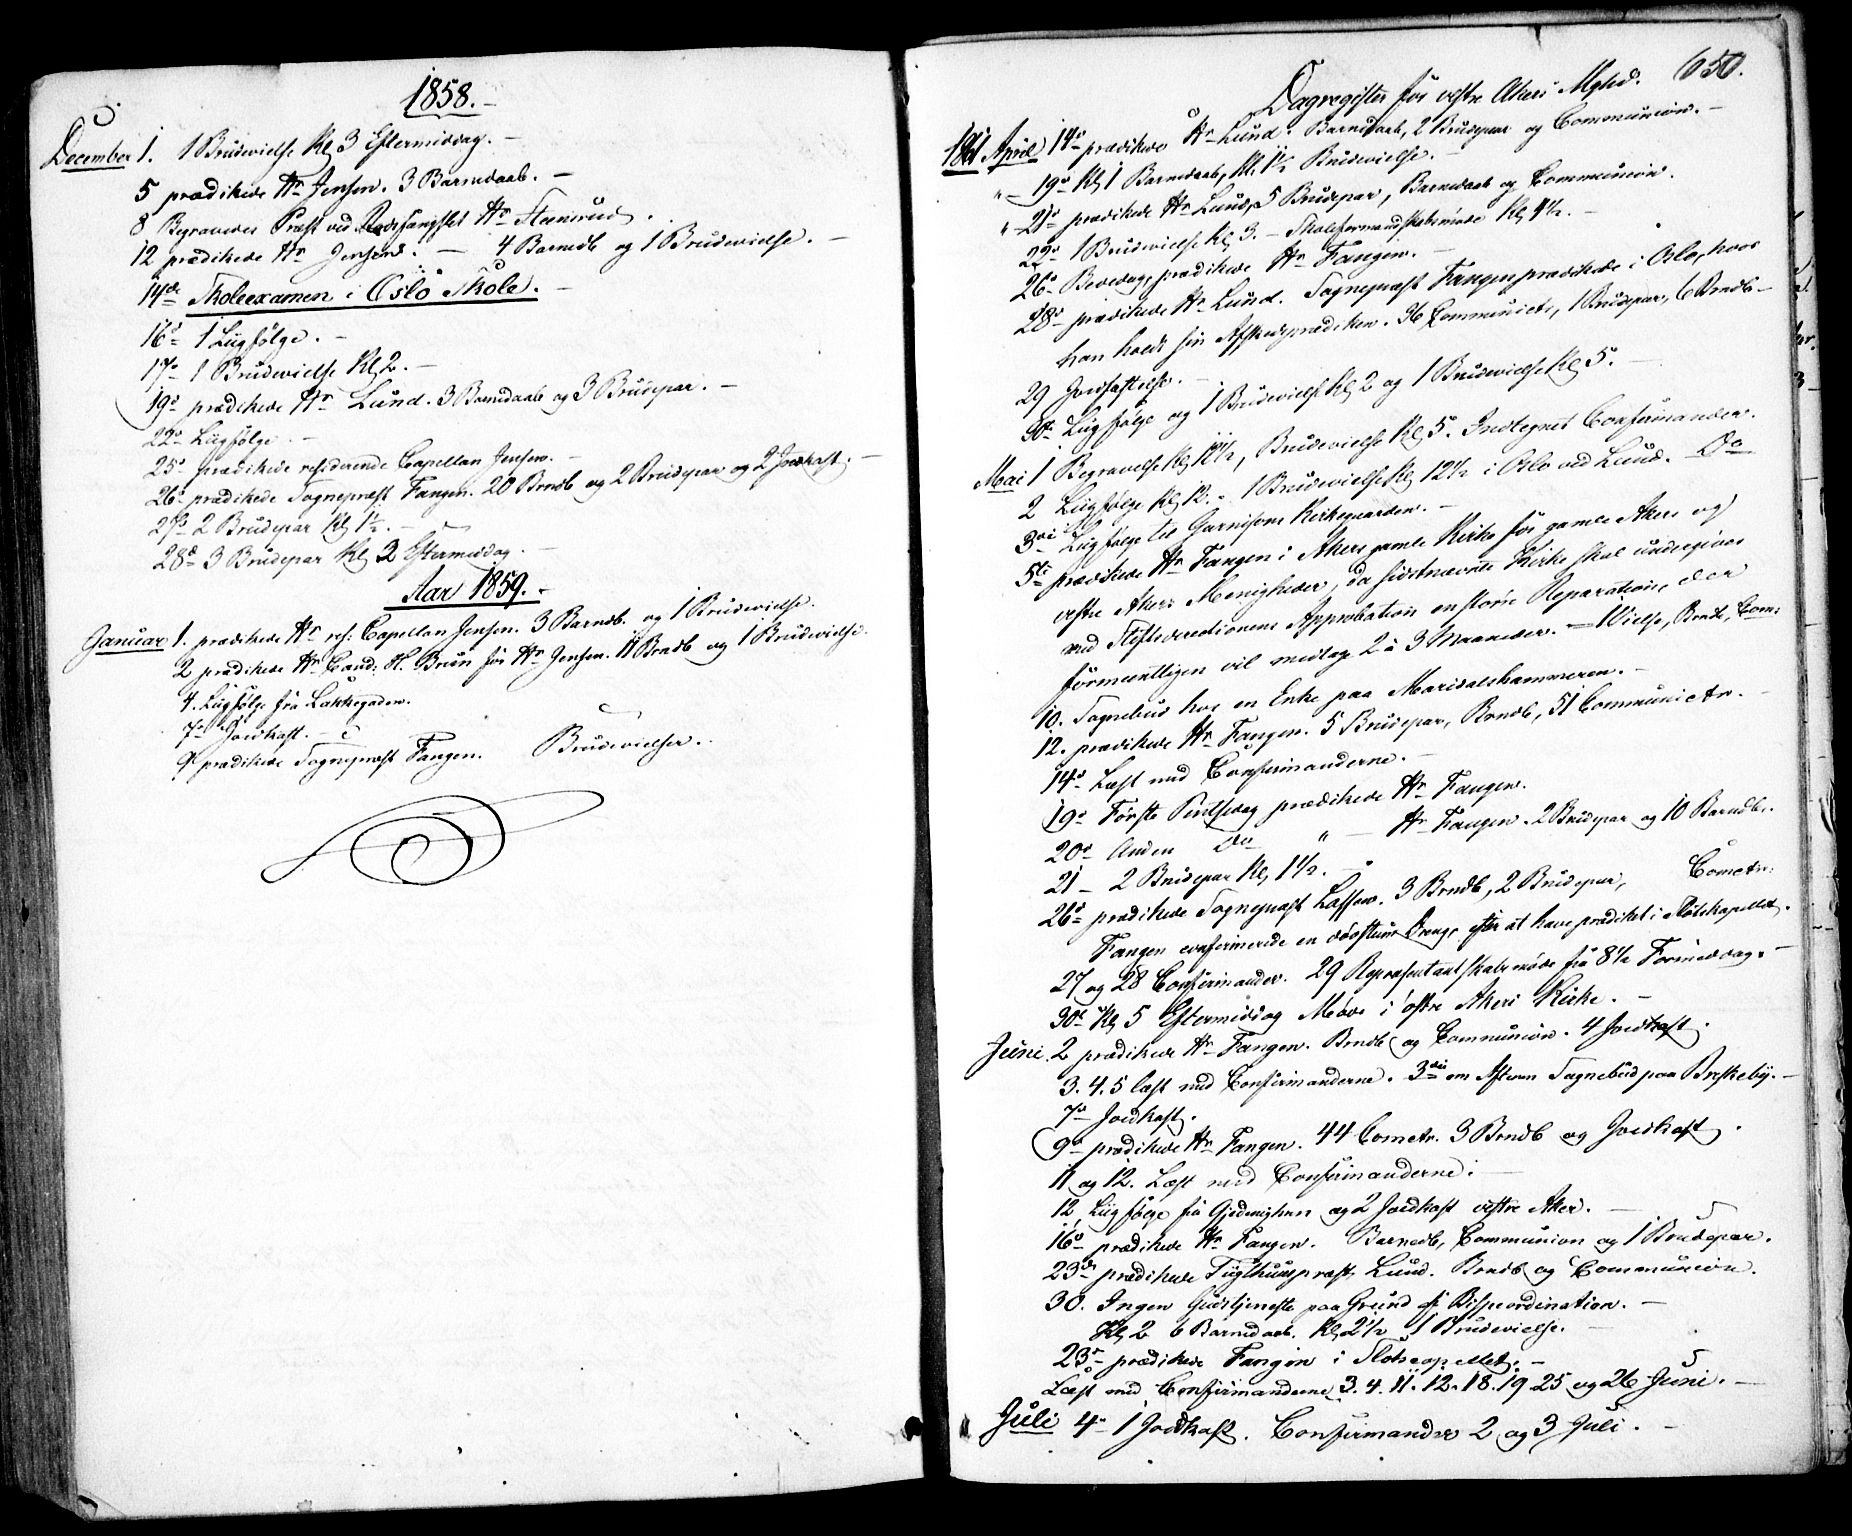 1858.-
December 1. 1 Brudevielse Kl 3 Eftermiddag.-
5 prædikede Hr Jensen. 3 Barnedaab.-
8 Begravedes Præst ved Hr
12 prædikede Hr Jensen. - 4 Barnedb og 1 Brudevielse.-
14de Skoleexamen i Oslo Skole.-
16de 1 Liigfølge.-
17de 1 Brudevielse Kl 2.-
19de prædikede Hr Lund. 3 Barnedaab og 3 Brudepar.-
22de Liigfølge.-
25de prædikede residerende Capellan Jensen.-
26de prædikede Sognepræst Fangen. 20 Brndb og 2 Brudepar og 2 Jordkast.-
27de 2 Brudepar Kl 1½.-
28de 3 Brudepar Kl 2 Eftermiddag.-
Aar 1859.-
Januar 1. prædikede Hr res: Capellan Jensen. 3 Barnedb. og 1 Brudevielse.
2 prædikede Hr Cand: H. Brun for Hr Jensen. 11 Brndb og 1 Brudevielse.
4. Liigfølge fra Lakkegaden.
7de Jordkast.-
9de prædikede Sognepræst Fangen. Brudevielser.
650.
Dagregister for vestre Akers Mghd.
1861 April 14de prædikede Hr Lund. Barnedaab, 2 Brudepar og Communion.-
" - 19de Kl 1 Barnedaab, Kl. 1½ Brudevielse.-
" - 21de prædikede Hr Lund, 5 Brudepar, Barnedaab og Communion.
22de 1 Brudevielse Kl 3. - Skoleformandskabsmøde Kl 4½.-
26de Bededag, prædikede Hr Fangen.-
28de prædikede Hr Lund. Sognepræst Fangen prædikede i Oslo, hvor
han holdt sin Afskedsprædiken. 36 Communicts, 1 Brudepar, 6 Brndb-
29 Jordfæstelse.-
30te Liigfølge og 1 Brudevielse Kl 2 og 1 Brudevielse Kl 5.-
Mai 1 Begravelse Kl 12½, Brudevielse Kl 5. Indtegnet Confirmander.
2 Liigfølge Kl 12. - 1 Brudevielse Kl 12½ i Oslo ved Lund. - Do
3die Liigfølge til Garnisons Kirkegaarden.-
5te prædikede Hr Fangen i Akers gamle Kirke for gamle Akers og
vestre Akers Menigheder, da sidstnævnte Kirke skal undergives
med Stiftsdirectionens Approbation en større Reparation, der
formeentligen vil medtage 2 à 3 Maaneder. - 1 Vielse, Brndb, Com:
10. Sognebud hos en Enke paa Maridalshammeren.-
12. prædikede Hr Fangen. 5 Brudepar, Brndb, 51 Communictr.-
14de Læst med Confirmanderne.-
19de Første Pintsedag prædikede Hr Fangen.
20de Anden Do " - Hr Fangen. 2 Brudepar og 10 Barnedb.
21 - 2 Brudepar Kl 1½.-
26de prædikede Sognepræst Lassen. 3 Brndb, 2 Brudepar, Cometr:
Fangen confirmerede en døvstum Dreng efter at have prædiket i Slotskapellet.
27 og 28 Confirmander. 29 Representantskabsmøde fra 8½ Formiddag.-
30te Kl 5 Eftermiddag Møde i østre Akers Kirke.-
Juni. 2 prædikede Hr Fangen. Brndb og Communion. 4 Jordkast.
3. 4. 5 læst med Confirmanderne. 3die om Aftenen Sognebud paa Briskeby.-
7de Jordkast.
9de prædikede Hr Fangen. 44 Cometr. 3 Brndb og Jordkast.
11 og 12. Læst med Confirmanderne.-
12 Liigfølge fra Gjedemighen og 2 Jordkast vestre Aker.-
16de prædikede Hr Fangen. Barnedb, Communion og 1 Brudepar.
23de prædikede Tugthuuspræst Lund. Brndb og Communion.
30. Ingen Gudstjeneste paa Grund af Bispeordination.-
Kl 2 6 Barnedaab. Kl 2½ 1 Brudevielse.-
23de prædikede Fangen i Slotscapellet.-
Læst med Confirmanderne 3. 4. 11. 12. 18. 19. 25 og 26 Juni.-
Juli 4de 1 Jordkast. Confirmander 2 og 3 Juli.-